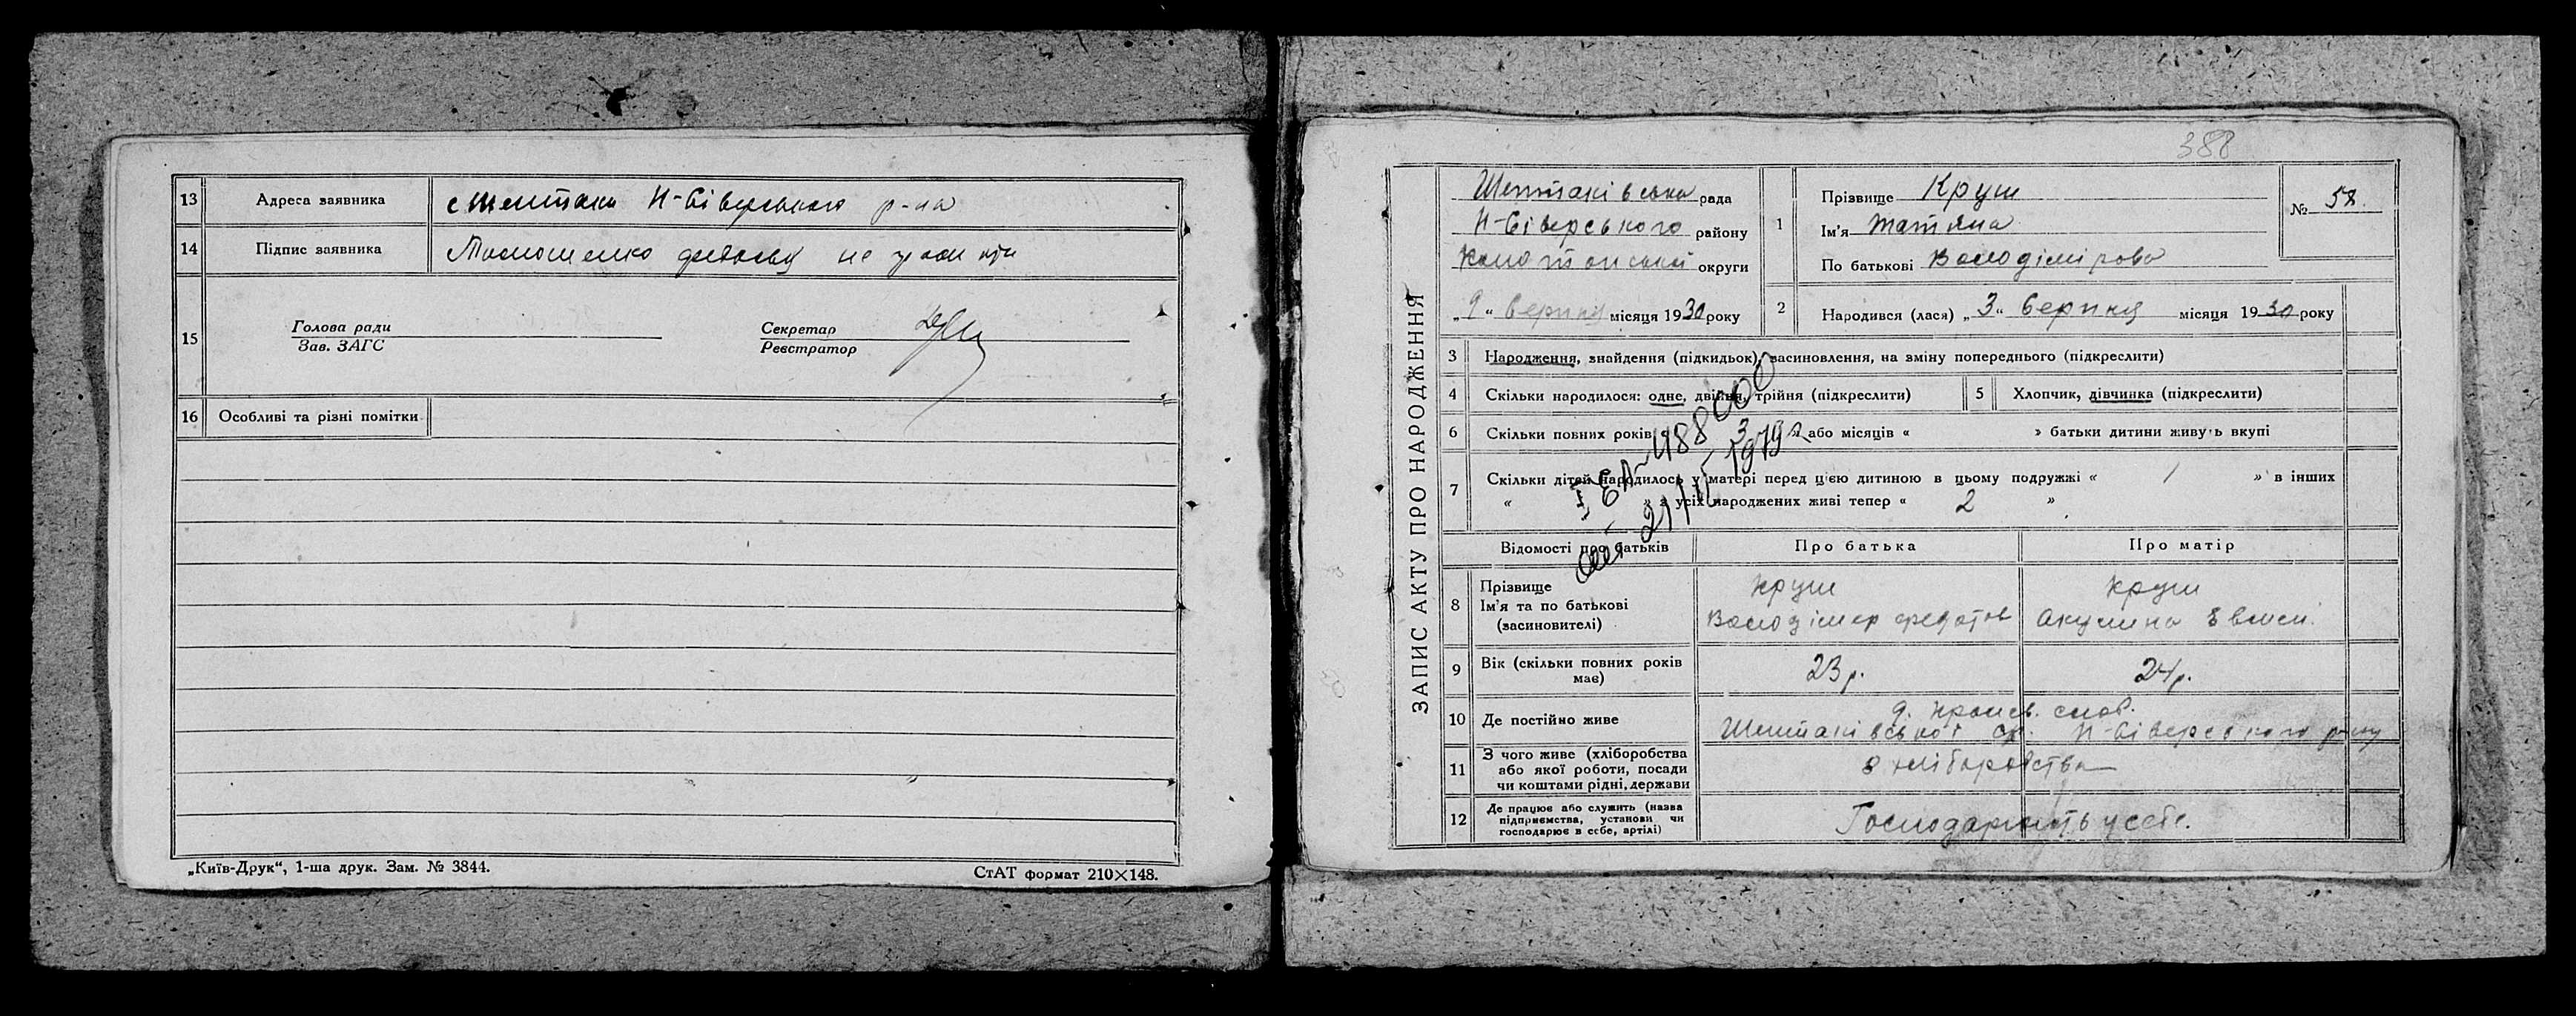 13 Адреса заявника с Шептаки Н-Сіверського р-на
14 Підпис заявника не
15 Голова ради
Зав. ЗАГС
Секретар
Реєстратор
16 Особливі та різні помітки
„Київ-Друк“, 1-ша друк. Зам. № 3844.
СтАТ формат 210×148.
388
ЗАПИС АКТУ ПРО НАРОДЖЕННЯ
Шептаківська рада
Н-Сіверського району
Конотопської округи
„9“ Серпня місяця 1930 року
1 Прізвище Круш
Ім'я Татяна
По батькові Володімірова
№ 58.
2 Народився (лася) „3“ Серпня місяця 1930 року
3 Народження, знайдення (підкидьок), засиновлення, на зміну попереднього (підкреслити)
4 Скільки народилося: одне, двійня, трійня (підкреслити)
5 Хлопчик, дівчинка (підкреслити)
6 Скільки повних років « 3 » або місяців « » батьки дитини живуть вкупі
7 Скільки дітей народилось у матері перед цією дитиною в цьому подружжі « 1 » в інших
« » з усіх народжених живі тепер « 2 »
Відомості про батьків
Про батька
Про матір
8 Прізвище
Ім'я та по батькові
(засиновителі)
Круш
Володімер Федотов
Круш
Акулина
9 Вік (скільки повних років має)
23 р.
24 р.
10 Де постійно живе
Шептаківської с/р. Н-Сіверського р-ну
11 З чого живе (хліборобства
або якої роботи, посади
чи коштами рідні, держави
з хліборобства
12 Де працює або служить (назва
підприємства, установи чи
господарює в себе, артілі)
Господарюють у себе.
1979